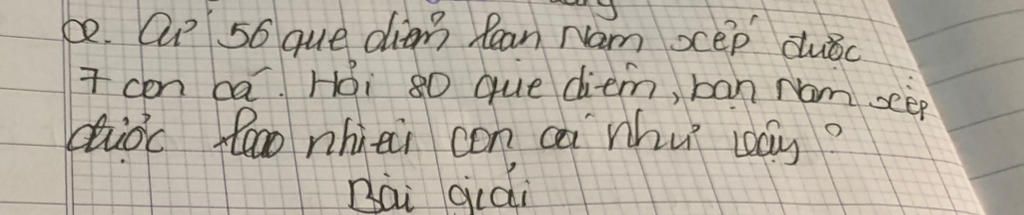 e. Cứ 56 que diêm bạn Nam xếp được
7 con cá. Hỏi 80 que diêm, bạn Nam xếp
được bao nhiêu con cá như vậy?
Bài giải